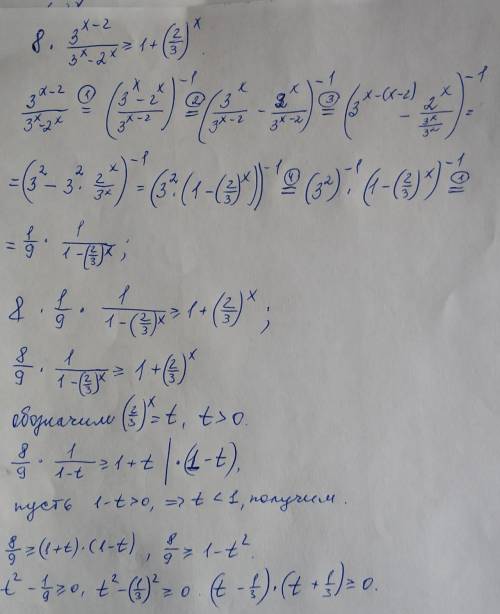 8 · 3^(x-2)/(3^x - 2^x) ≥ 1 + (2/3)^x.
3^(x-2)/(3^x - 2^x) =① ((3^x - 2^x)/3^(x-2))^(-1) =② (3^x/3^(x-2) - 2^x/3^(x-2))^(-1) =③ (3^(x-(x-2)) - 2^x/(3^x/3^2))^(-1) =
= (3^2 - 3^2 · 2^x/3^x)^(-1) = (3^2 · (1 - (2/3)^x))^(-1) =④ (3^2)^(-1) · (1 - (2/3)^x)^(-1) =①
= 1/9 · 1/(1 - (2/3)^x) ;
8 · 1/9 · 1/(1 - (2/3)^x) ≥ 1 + (2/3)^x ;
8/9 · 1/(1 - (2/3)^x) ≥ 1 + (2/3)^x
обозначим (2/3)^x = t, t > 0.
8/9 · 1/(1-t) ≥ 1 + t | · (1 - t),
пусть 1-t > 0, ⇒ t < 1, получим.
8/9 ≥ (1+t) · (1-t) , 8/9 ≥ 1 - t^2.
t^2 - 1/9 ≥ 0, t^2 - (1/3)^2 ≥ 0. (t - 1/3) · (t + 1/3) ≥ 0.